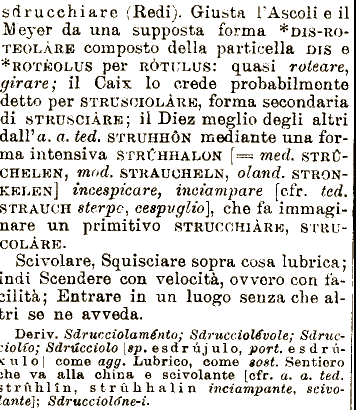 sdrucchiare (Redi). Giusta l'Ascoli e il
Meyer da una supposta forma *DIS-RO-
TEOLÀRE composto della particella DIS e
*ROTÈOLUS per RÒTULUS: quasi roteare,
girare; il Caix lo crede probabilmente
detto per STRUSCIOLÀRE, forma secondaria
di STRUSCIÀRE; il Diez meglio degli altri
dall'a. a. ted. STRUHHÔN mediante una for-
ma intensiva STRÛHHALON [= med. STRÛ-
CHELEN, mod. STRAUCHELN, oland. STRON-
KELEN] incespicare, inciampare [cfr. ted.
STRAUCH sterpo, cespuglio], che fa immagi-
nare un primitivo STRUCCHIÀRE, STRU-
COLÀRE.
Scivolare, Squisciare sopra cosa lubrica;
indi Scendere con velocità, ovvero con fa-
cilità; Entrare in un luogo senza che al-
tri se ne avveda.
Deriv. Sdrucciolaménto; Sdrucciolévole; Sdruc-
ciolío; Sdrùcciolo [sp. esdrújulo, port. esdrú-
xulo] come agg. Lubrico, come sost. Sentiero
che va alla china e scivolante [cfr. a. a. ted.
strûhlîn, strûhhalin inciampante, scivo-
lante]; Sdrucciolóne-i.